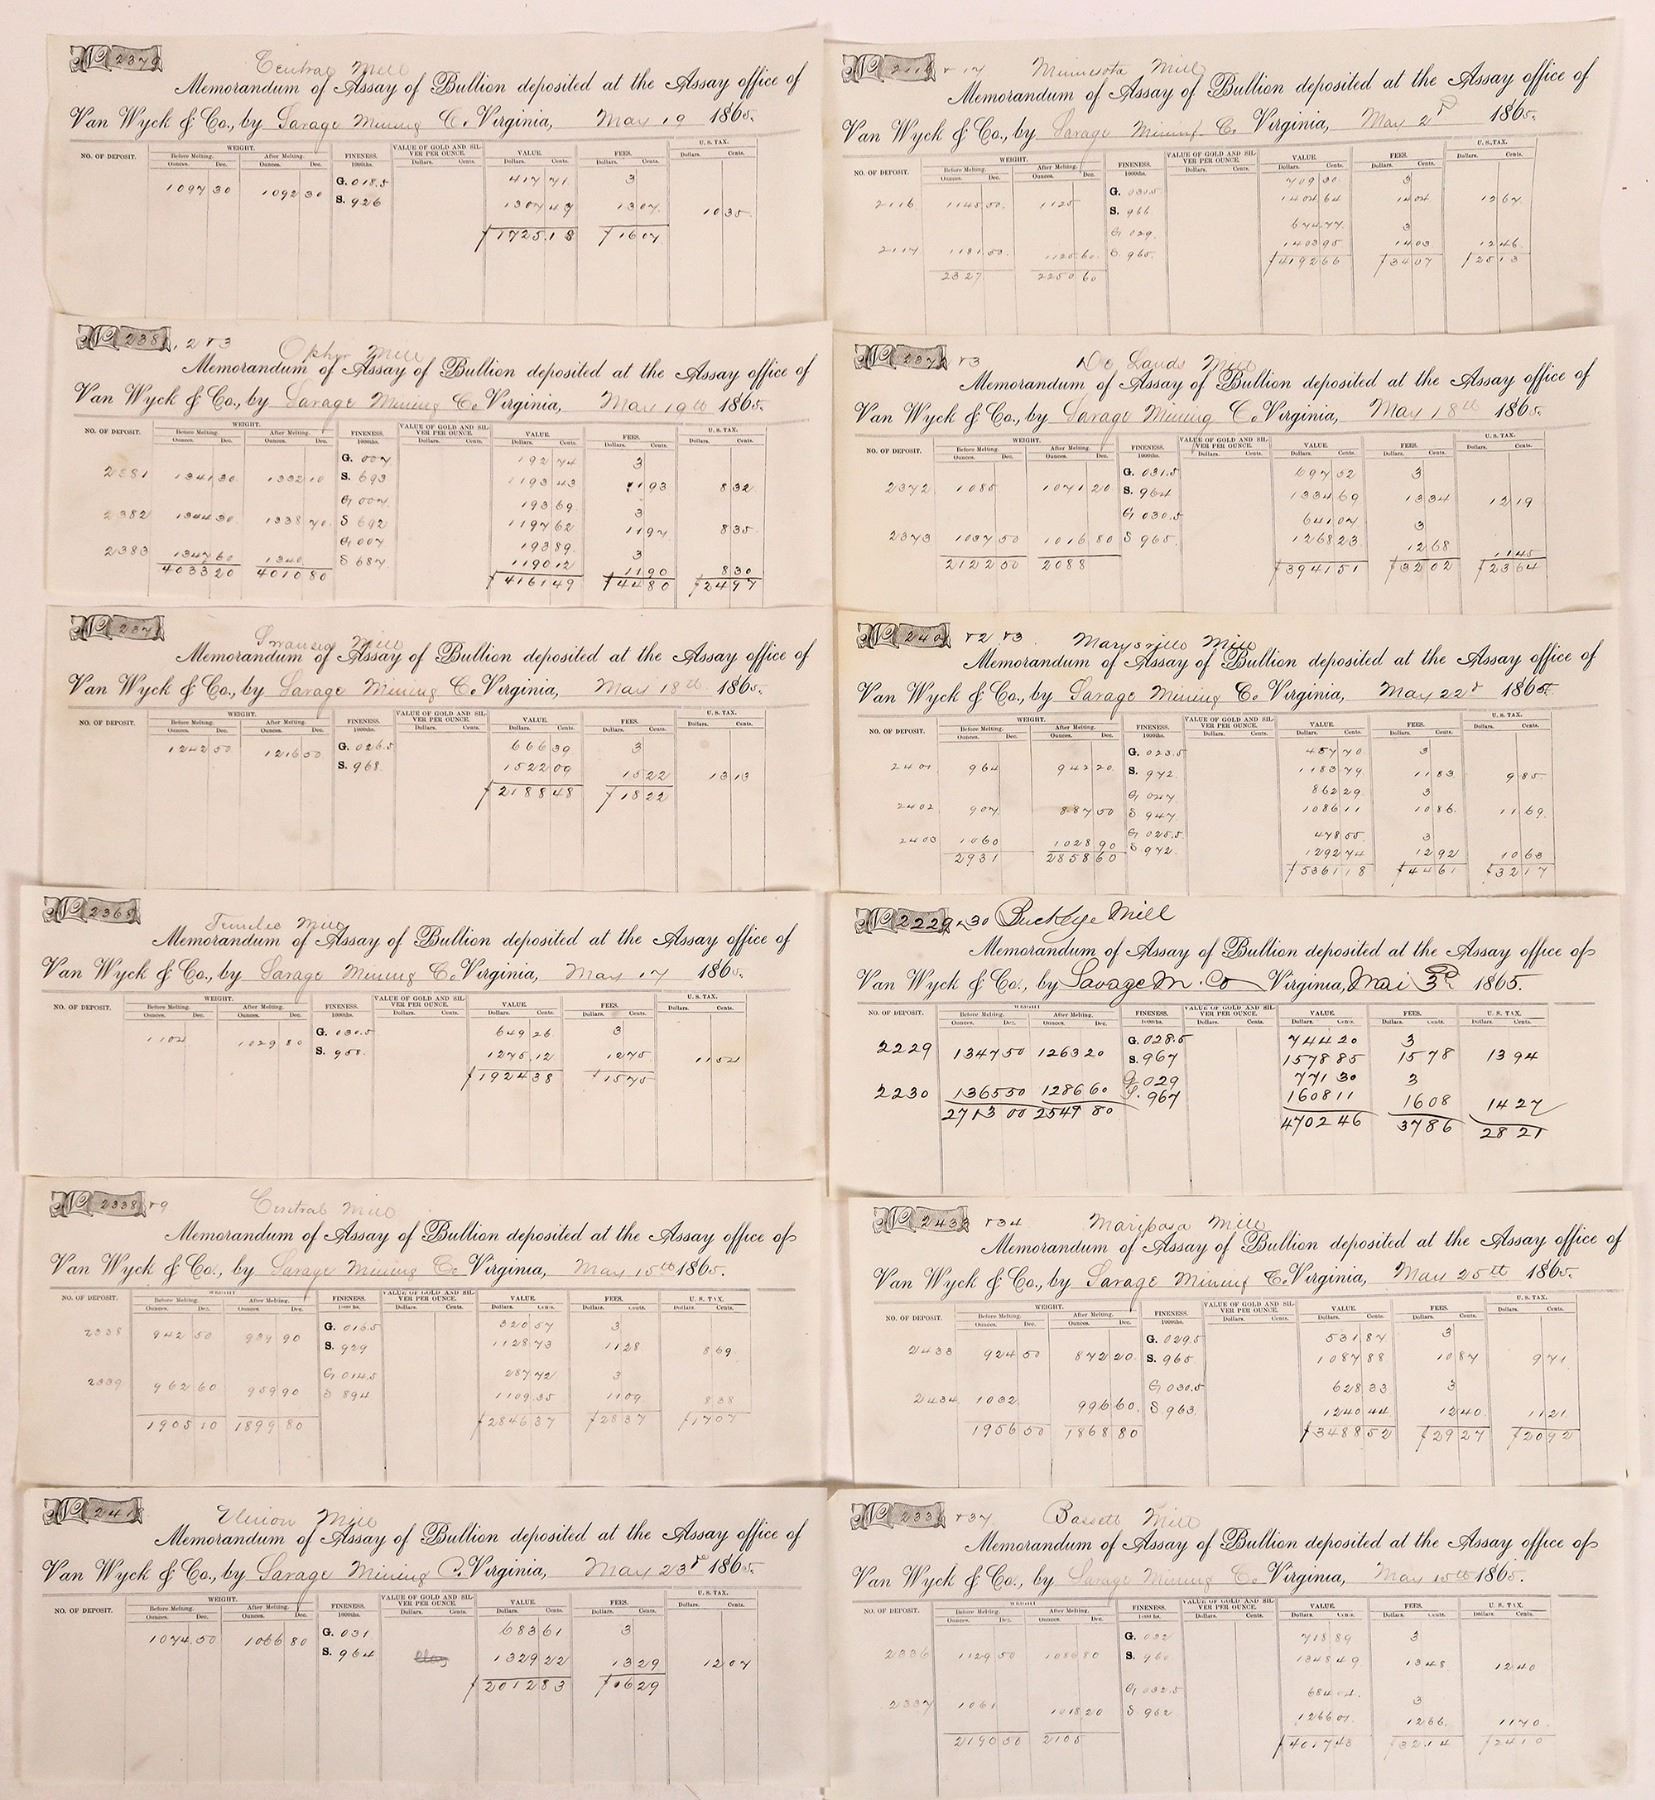 No 2379 Central Mill
Memorandum of Assay of Bullion deposited at the Assay office of
Van Wyck & Co., by Savage Mining Co Virginia, May 19 1865.
NO. OF DEPOSIT. WEIGHT. FINENESS. VALUE OF GOLD AND SILVER PER OUNCE. VALUE. FEES. U.S. TAX.
Before Melting. After Melting. 1000ths. Dollars. Cents. Dollars. Cents. Dollars. Cents. Dollars. Cents.
Ounces. Dec. Ounces. Dec.
1097 30 1092 30 G. 018.5 417 71 3
S. 926 1307 47 13 07 10 35
$1725.18 $16 07
No 2381, 2 & 3 Ophir Mill
Memorandum of Assay of Bullion deposited at the Assay office of
Van Wyck & Co., by Savage Mining Co Virginia, May 19th 1865.
NO. OF DEPOSIT. WEIGHT. FINENESS. VALUE OF GOLD AND SILVER PER OUNCE. VALUE. FEES. U.S. TAX.
Before Melting. After Melting. 1000ths. Dollars. Cents. Dollars. Cents. Dollars. Cents. Dollars. Cents.
Ounces. Dec. Ounces. Dec.
G. 007 192 74 3
2381 1341 30 1332 10 S. 693 1193 43 11 93 8 32
G 007 193 69 3
2382 1344 30 1338 70 S 692 1197 62 11 97 8 35
G 007 193 89 3
2383 1347 60 1340 S 687 1190 12 11 90 8 30
4033 20 4010 80 $4161 49 $44 80 $24 97
No 237 Swansea Mill
Memorandum of Assay of Bullion deposited at the Assay office of
Van Wyck & Co., by Savage Mining Co Virginia, May 18th 1865.
NO. OF DEPOSIT. WEIGHT. FINENESS. VALUE OF GOLD AND SILVER PER OUNCE. VALUE. FEES. U.S. TAX.
Before Melting. After Melting. 1000ths. Dollars. Cents. Dollars. Cents. Dollars. Cents. Dollars. Cents.
Ounces. Dec. Ounces. Dec.
1242 50 1216 50 G. 026.5 666 39 3
S. 968 1522 09 15 22 13 13
$2188 48 $18 22
No 2365 Mill
Memorandum of Assay of Bullion deposited at the Assay office of
Van Wyck & Co., by Savage Mining Co Virginia, May 17 1865.
NO. OF DEPOSIT. WEIGHT. FINENESS. VALUE OF GOLD AND SILVER PER OUNCE. VALUE. FEES. U.S. TAX.
Before Melting. After Melting. 1000ths. Dollars. Cents. Dollars. Cents. Dollars. Cents. Dollars. Cents.
Ounces. Dec. Ounces. Dec.
1029 80 G. 030.5 649 26 3
S. 958 1275.12 12 75
$1924 38 $15 75
No 2338 & 9 Central Mill
Memorandum of Assay of Bullion deposited at the Assay office of
Van Wyck & Co., by Savage Mining Co Virginia, May 15th 1865.
NO. OF DEPOSIT. WEIGHT. FINENESS. VALUE OF GOLD AND SILVER PER OUNCE. VALUE. FEES. U.S. TAX.
Before Melting. After Melting. 1000ths. Dollars. Cents. Dollars. Cents. Dollars. Cents. Dollars. Cents.
Ounces. Dec. Ounces. Dec.
G. 016.5 320 57 3
2338 942 50 939 90 S. 929 1128 73 11 28 8 69
G 014.5 287 72 3
2339 962 60 959 90 S 894 1109.35 11 09 8 38
1905 10 1899 80 $2846 37 $28 37 $17 07
No 241 Union Mill
Memorandum of Assay of Bullion deposited at the Assay office of
Van Wyck & Co., by Savage Mining Co Virginia, May 23rd 1865.
NO. OF DEPOSIT. WEIGHT. FINENESS. VALUE OF GOLD AND SILVER PER OUNCE. VALUE. FEES. U.S. TAX.
Before Melting. After Melting. 1000ths. Dollars. Cents. Dollars. Cents. Dollars. Cents. Dollars. Cents.
Ounces. Dec. Ounces. Dec.
1074.50 1066 80 G. 031 683 61 3
S. 964 1329 22 13 29 12 07
$2012 83 $16 29
No 2116 & 17 Minnesota Mill
Memorandum of Assay of Bullion deposited at the Assay office of
Van Wyck & Co., by Savage Mining Co. Virginia, May 2d 1865.
NO. OF DEPOSIT. WEIGHT. FINENESS. VALUE OF GOLD AND SILVER PER OUNCE. VALUE. FEES. U.S. TAX.
Before Melting. After Melting. 1000ths. Dollars. Cents. Dollars. Cents. Dollars. Cents. Dollars. Cents.
Ounces. Dec. Ounces. Dec.
G. 030.5 709 30 3
2116 1145 50 1125 S. 966 1404 64 14 04 12 67
G 029. 674.77 3
2117 1181 50 1125 60 S 965. 1403 95 14 03 12 46
2327 2250 60 $4192 66 $34 07 $25 13
No 237 & 3 De Lands Mill
Memorandum of Assay of Bullion deposited at the Assay office of
Van Wyck & Co., by Savage Mining Co Virginia, May 18th 1865.
NO. OF DEPOSIT. WEIGHT. FINENESS. VALUE OF GOLD AND SILVER PER OUNCE. VALUE. FEES. U.S. TAX.
Before Melting. After Melting. 1000ths. Dollars. Cents. Dollars. Cents. Dollars. Cents. Dollars. Cents.
Ounces. Dec. Ounces. Dec.
G. 031.5 697 52 3
2372 1085 1071 20 S. 964 1334 69 13 34 12 19
G 030.5 641 07 3
2373 1037 50 1016 80 S 965. 1268 23 12 68 11 45
2122 50 2088 $3941 51 $32 02 $23 64
No 240 & 2 & 3 Marysville Mill
Memorandum of Assay of Bullion deposited at the Assay office of
Van Wyck & Co., by Savage Mining Co. Virginia, May 22d 1865.
NO. OF DEPOSIT. WEIGHT. FINENESS. VALUE OF GOLD AND SILVER PER OUNCE. VALUE. FEES. U.S. TAX.
Before Melting. After Melting. 1000ths. Dollars. Cents. Dollars. Cents. Dollars. Cents. Dollars. Cents.
Ounces. Dec. Ounces. Dec.
G. 023.5 457 70 3
2401 964 942 20 S. 972 1183 79 11 83 9 85
G 047 862 29 3
2402 907 887 50 S 947 1086 11 10 86 11 69
G 022.5 478 55 3
2403 1060 1028 90 S 972 1292 74 12 92 10 63
2931 2858 60 $5361 18 $44 61 $32 17
No 2229 & 30 Buckeye Mill
Memorandum of Assay of Bullion deposited at the Assay office of
Van Wyck & Co., by Savage M. Co Virginia, Mai 3d 1865.
NO. OF DEPOSIT. WEIGHT. FINENESS. VALUE OF GOLD AND SILVER PER OUNCE. VALUE. FEES. U.S. TAX.
Before Melting. After Melting. 1000ths. Dollars. Cents. Dollars. Cents. Dollars. Cents. Dollars. Cents.
Ounces. Dec. Ounces. Dec.
G. 028.5 744 20 3
2229 1347 50 1263 20 S. 967 1578 85 15 78 13 94
G. 029 771 30 3
2230 1365 50 1286 60 S. 967 1608 11 16 08 14 27
2713 00 2549 80 4702 46 37 86 28 21
No 2433 & 34 Mariposa Mill
Memorandum of Assay of Bullion deposited at the Assay office of
Van Wyck & Co., by Savage Mining Co. Virginia, May 25th 1865.
NO. OF DEPOSIT. WEIGHT. FINENESS. VALUE OF GOLD AND SILVER PER OUNCE. VALUE. FEES. U.S. TAX.
Before Melting. After Melting. 1000ths. Dollars. Cents. Dollars. Cents. Dollars. Cents. Dollars. Cents.
Ounces. Dec. Ounces. Dec.
G. 029.5 531 87 3
2433 924 50 872 20 S. 965 1087 88 10 87 9 71
G 030.5 628 33 3
2434 1032 996 60 S 963 1240 44 12 40 11 21
1956 50 1868 80 $3488 52 $29 27 $20 92
No 233 & 37 Bassett Mill
Memorandum of Assay of Bullion deposited at the Assay office of
Van Wyck & Co., by Savage Mining Co. Virginia, May 15th 1865.
NO. OF DEPOSIT. WEIGHT. FINENESS. VALUE OF GOLD AND SILVER PER OUNCE. VALUE. FEES. U.S. TAX.
Before Melting. After Melting. 1000ths. Dollars. Cents. Dollars. Cents. Dollars. Cents. Dollars. Cents.
Ounces. Dec. Ounces. Dec.
G. 032 718 89 3
2336 1129 50 1086 80 S. 960 1348 49 13 48 12 40
G 032.5 684 04 3
2337 1061 1018 20 S 962 1266 01 12 66 11 70
2190 50 2105 $4017 43 $32 14 $24 10